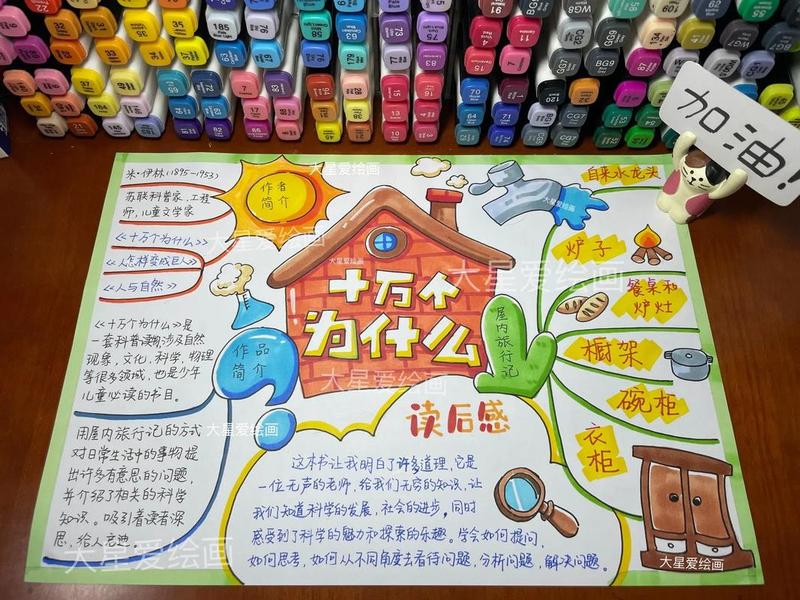 加油!
米·伊林(1895-1953)
苏联科普家、工程
师,儿童文学家
《十万个为什么》
《人怎样变成巨人》
《人与自然》
作者
简介
《十万个为什么》是
一套科普读物,涉及自然
现象,文化,科学,物理
等很多领域,也是少年
儿童必读的书目。
作品
简介
用屋内旅行记的方式
对日常生活中的事物提
出许多有意思的问题,
并介绍了相关的科学
知识。吸引着读者深
思,给人启迪。
十万个
为什么
屋内旅行记
自来水龙头
炉子
餐桌和
炉灶
橱架
碗柜
衣柜
读后感
这本书让我明白了许多道理,它是
一位无声的老师,给我们无穷的知识,让
我们知道科学的发展,社会的进步,同时
感受到了科学的魅力和探索的乐趣。学会如何提问,
如何思考,如何从不同角度去看待问题,分析问题,解决问题。
大星爱绘画
大星爱绘画
大星爱绘画
大星爱绘画
大星爱绘画
大星爱绘画
大星爱绘画
大星爱绘画
大星爱绘画